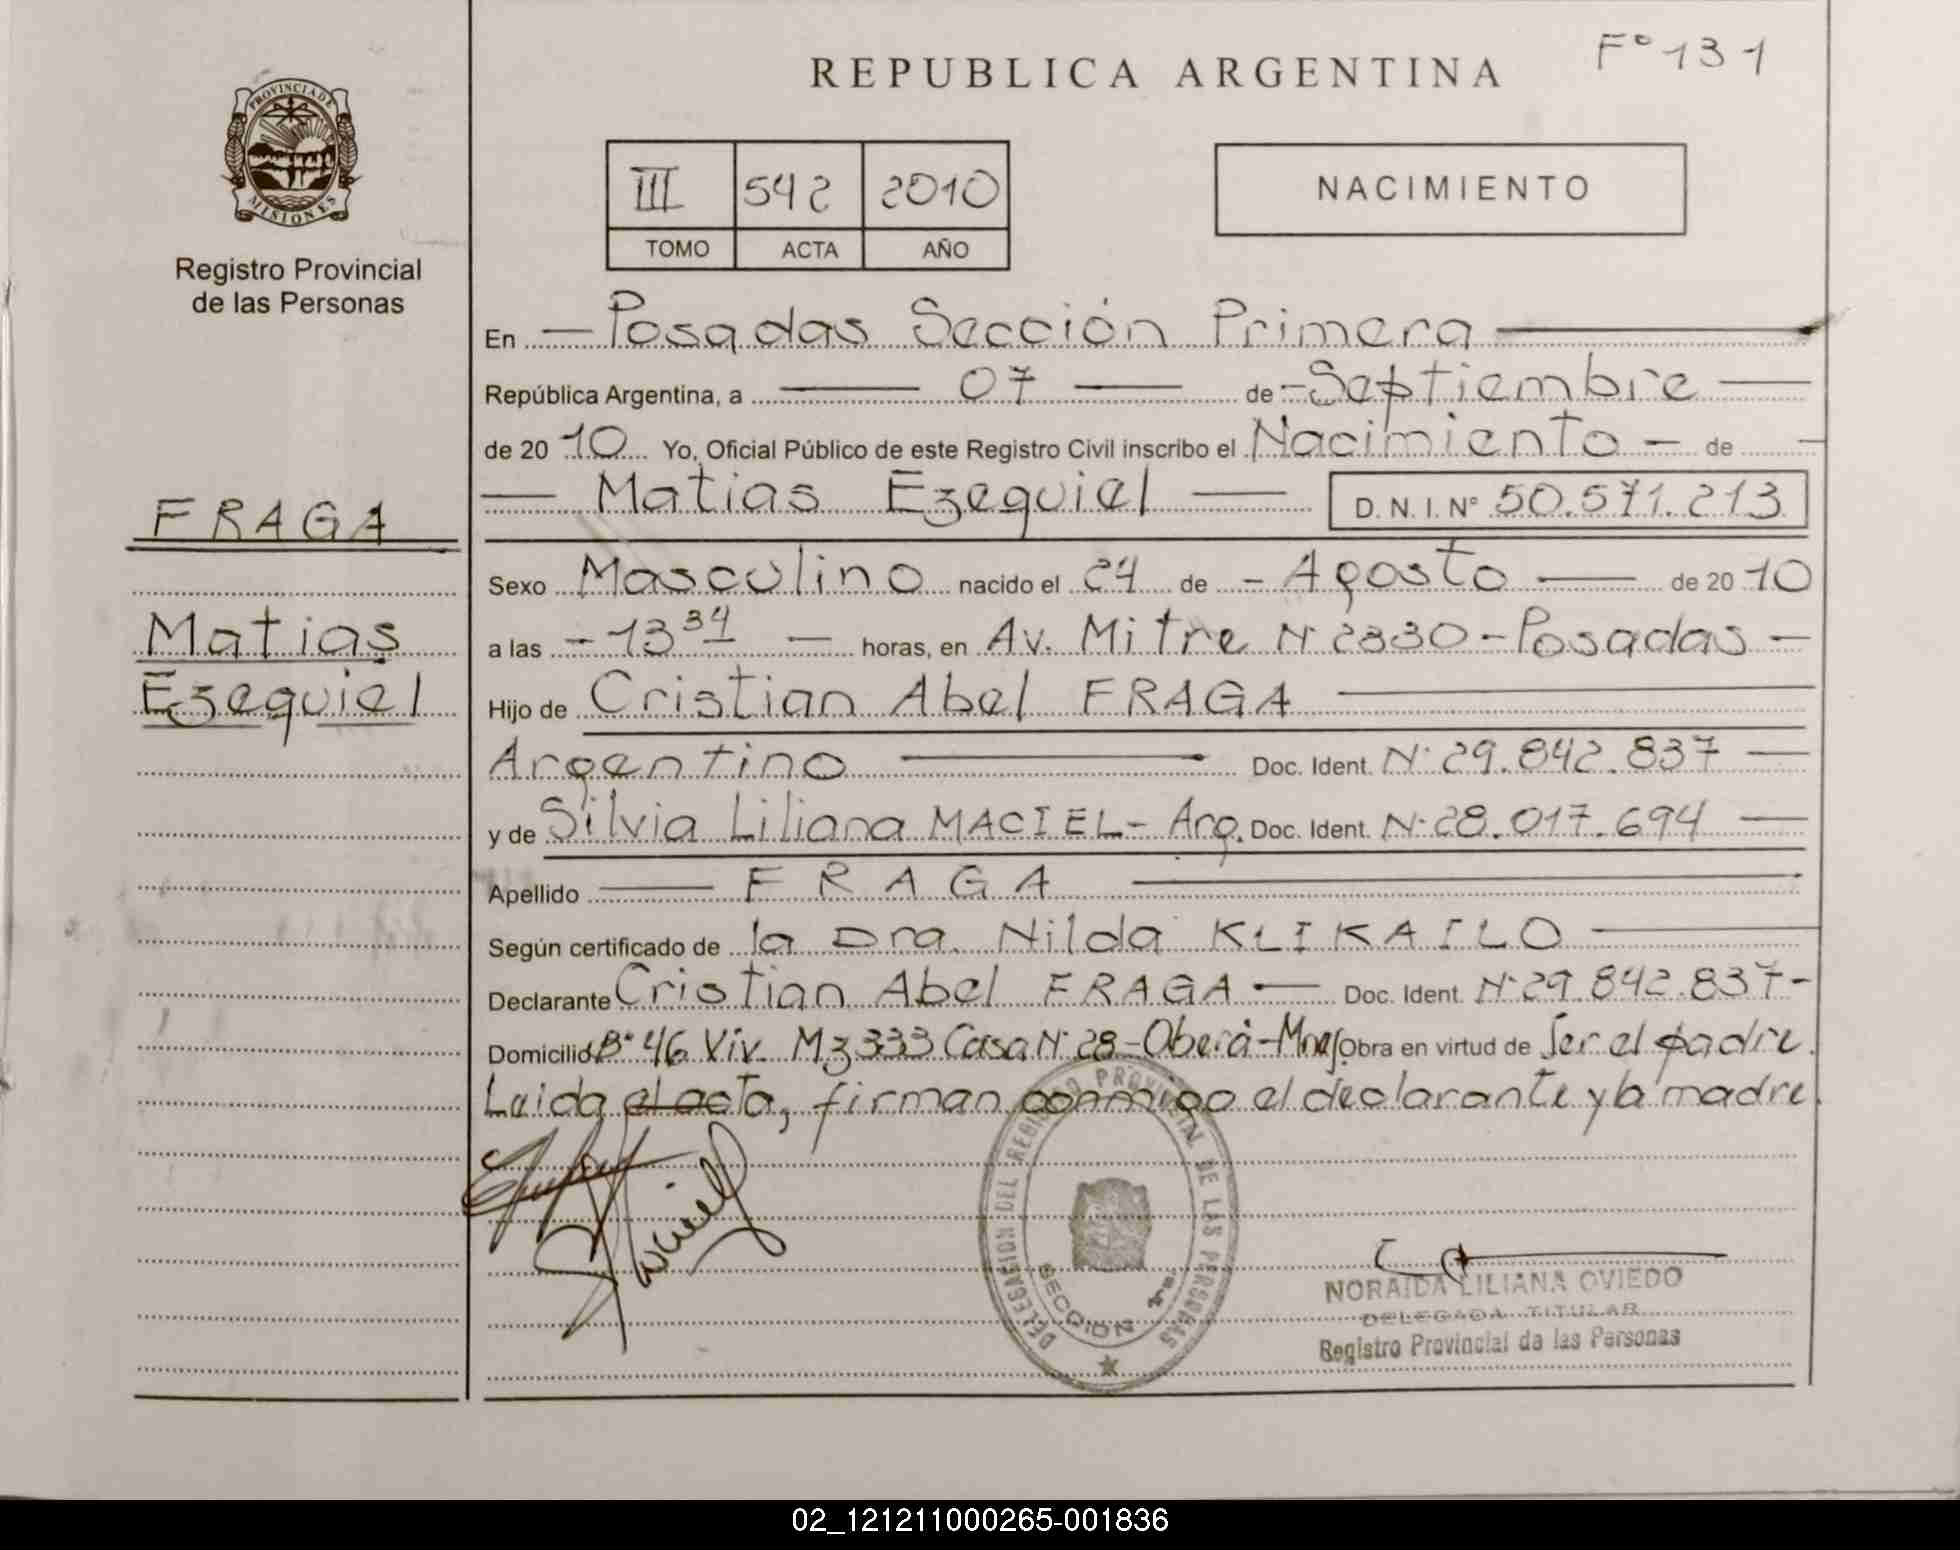 REPUBLICA ARGENTINA
Fº 131
PROVINCIA DE
MISIONES
Registro Provincial
de las Personas
III 542 2010
TOMO ACTA AÑO
NACIMIENTO
FRAGA
Matias
Ezequiel
En — Posadas Sección Primera —
República Argentina, a — 07 — de - Septiembre —
de 20 10 Yo, Oficial Público de este Registro Civil inscribo el Nacimiento — de —
— Matias Ezequiel — D. N. I. Nº 50.571.213
Sexo Masculino nacido el 24 de - Agosto — de 20 10
a las - 13 34 — horas, en Av. Mitre Nº 2330 - Posadas -
Hijo de Cristian Abel FRAGA —
Argentino — Doc. Ident. Nº 29.842.837 —
y de Silvia Liliana MACIEL - Arg. Doc. Ident. Nº 28.017.694 —
Apellido — FRAGA —
Según certificado de la Dra. Nilda KLIKAILO —
Declarante Cristian Abel FRAGA — Doc. Ident. Nº 29.842.837 -
Domicilio Bº 46 Viv. Mz 333 Casa Nº 28 - Oberá - Mnes. Obra en virtud de Ser el padre.
Leida el acta, firman conmigo el declarante y la madre.
Maciel
DELEGACION DEL REGISTRO PROVINCIAL DE LAS PERSONAS
SECCION 1ra.
NORAIDA LILIANA OVIEDO
DELEGADA TITULAR
Registro Provincial de las Personas
02_121211000265-001836